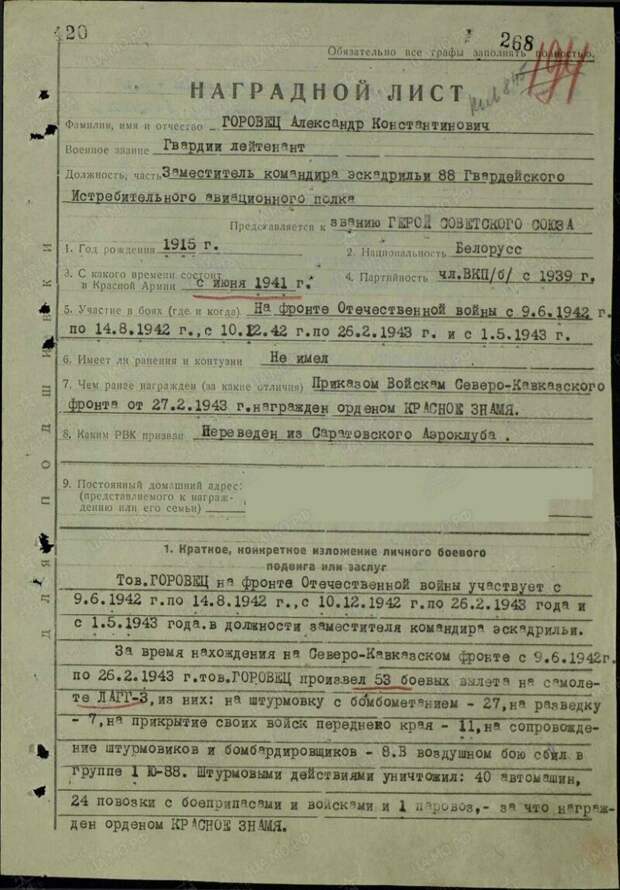 420
268
Обязательно все графы заполнять полностью.
194
НАГРАДНОЙ ЛИСТ
Фамилия, имя и отчество ГОРОВЕЦ Александр Константинович
Военное звание Гвардии лейтенант
Должность, часть Заместитель командира эскадрильи 88 Гвардейского
Истребительного авиационного полка
Представляется к званию ГЕРОЙ СОВЕТСКОГО СОЮЗА
1. Год рождения 1915 г. 2. Национальность Белорусс
3. С какого времени состоит
в Красной Армии с июня 1941 г. 4. Партийность чл.ВКП/б/ с 1939 г,
5. Участие в боях (где и когда) На фронте Отечественной войны с 9.6.1942 г.
по 14.8.1942 г., с 10.12.42 г.по 26.2.1943 г. и с 1.5.1943 г.
6. Имеет ли ранения и контузии Не имел
7. Чем ранее награжден (за какие отличия) Приказом Войскам Северо-Кавказского
фронта от 27.2.1943 г.награжден орденом КРАСНОЕ ЗНАМЯ.
8. Каким РВК призван Переведен из Саратовского Аэроклуба .
9. Постоянный домашний адрес:
(представляемого к награж-
дению или его семьи)
ДЛЯ ПОДШИВКИ
1. Краткое, конкретное изложение личного боевого
подвига или заслуг
Тов.ГОРОВЕЦ на фронте Отечественной войны участвует с
9.6.1942 г.по 14.8.1942 г.,с 10.12.1942 г.по 26.2.1943 года и
с 1.5.1943 года.в должности заместителя командира эскадрильи.
За время нахождения на Северо-Кавказском фронте с 9.6.1942г.
по 26.2.1943 г.тов.ГОРОВЕЦ произвел 53 боевых вылета на самоле-
те ЛАГГ-3,из них: на штурмовку с бомбометанием - 27,на разведку
- 7,на прикрытие своих войск переднего края - 11,на сопровожде-
ние штурмовиков и бомбардировщиков - 8.В воздушном бою сбил в
группе 1 Ю-88. Штурмовыми действиями уничтожил: 40 автомашин,
24 повозки с боеприпасами и войсками и 1 паровоз,- за что награж-
ден орденом КРАСНОЕ ЗНАМЯ.